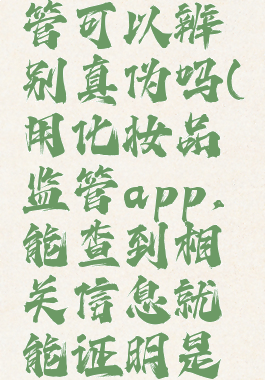 管可以辨
别真伪吗(
用化妆品
监管app,
能查到相
关信息就
能证明是